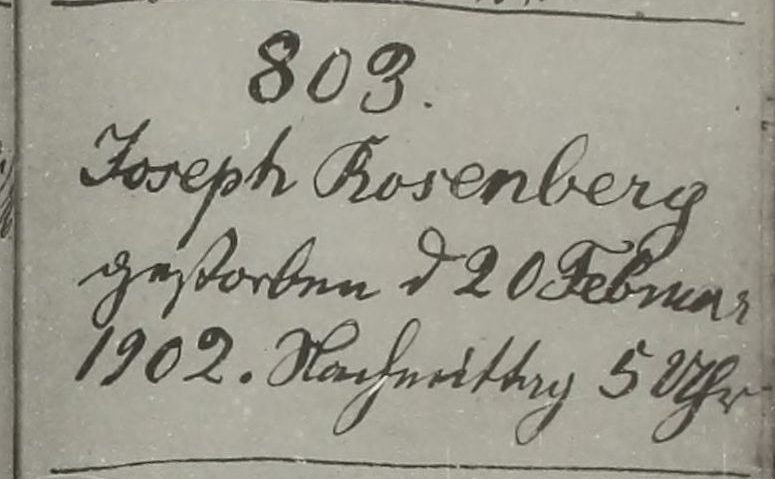 803.
Joseph Rosenberg
gestorben d 20 Februar
1902. Nachmittag 5 Uhr